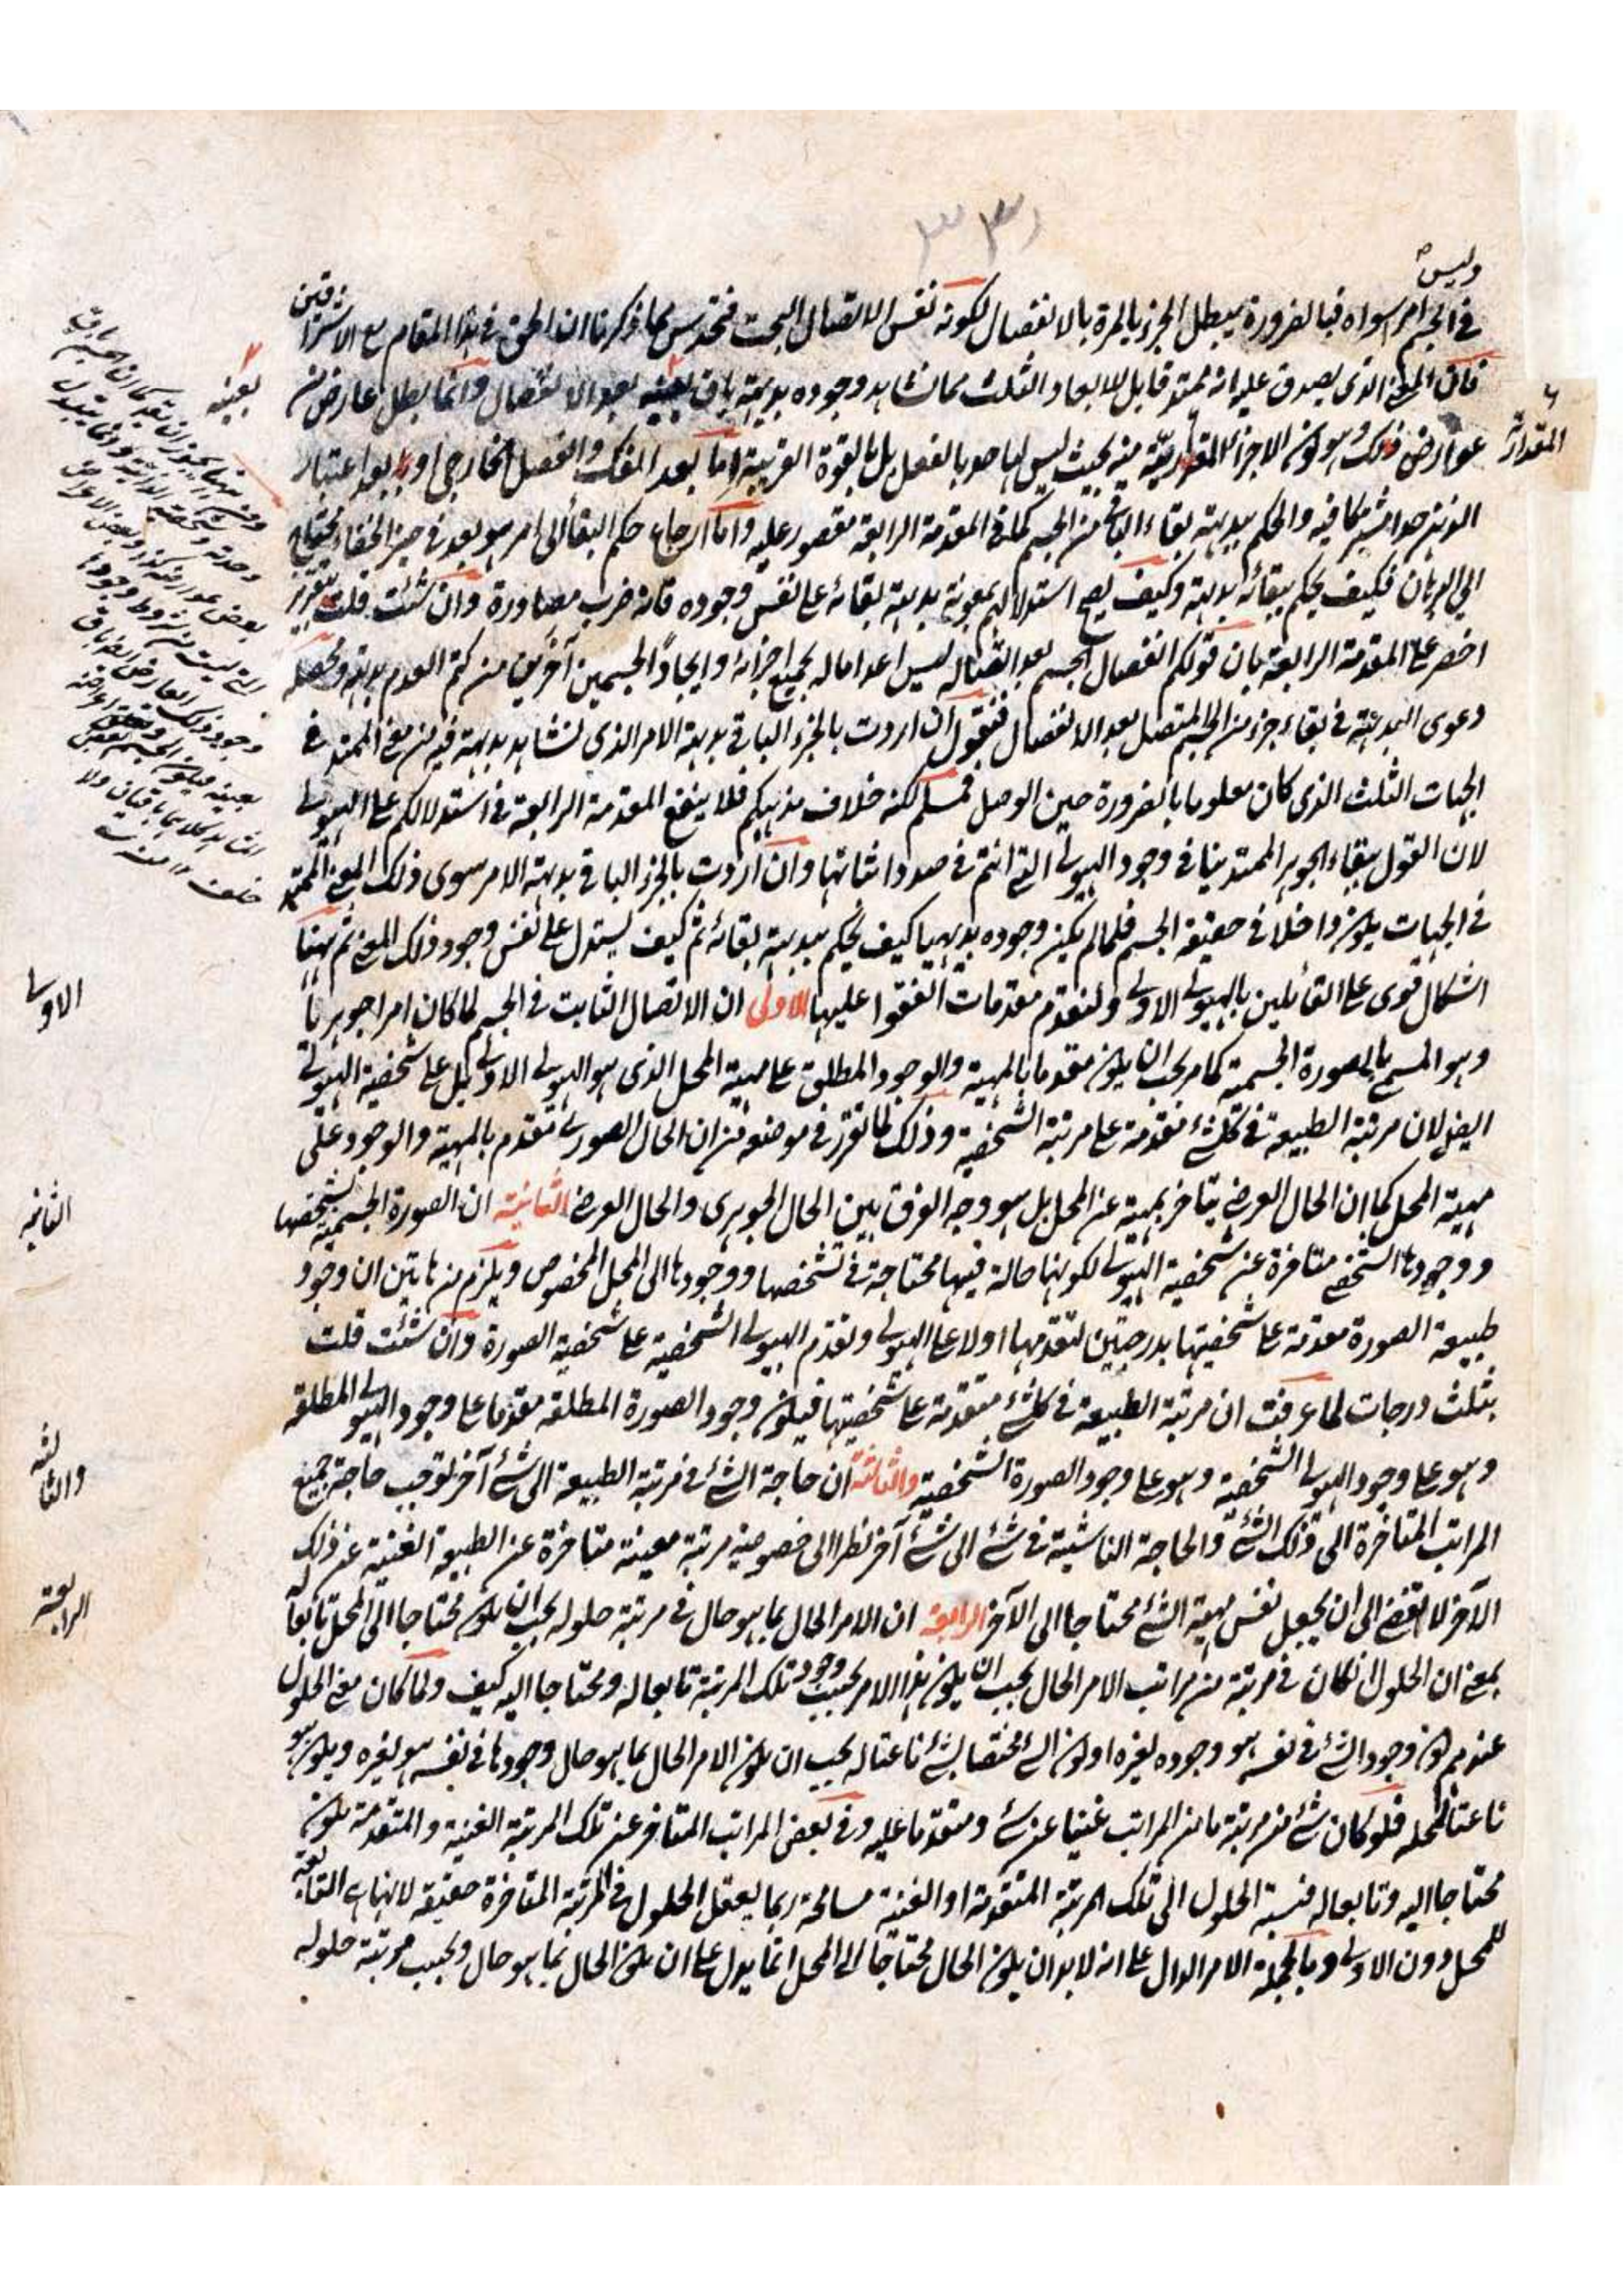 وليس
في الجسم امر سواه فبالضرورة يبطل الجزء بالمرة بالانفصال لكونه نفس الاتصال البحت فتحدس مما ذكرنا ان الحق في هذا المقام مع الاشراقيين
فان المعنى الذي يصدق عليه انه ممتد قابل للابعاد الثلث مما نشاهد وجوده بديهة باق بعينه بعد الانفصال وانما يبطل عارض من
عوارض ذلك وهو كون الاجزاء المقدارية منه بحيث ليس لها حد بالفعل بل بالقوة القريبة اما بعد الفك والفصل الخارجي او بعد اعتبار
الذهن حدا مشتركا فيه والحكم ببديهة بقاء الباقي من الجسم كما في المقدمة الرابعة مقصور عليه واما ارجاع حكم البقاء الى امر هو بعد في حيز الخفاء محتاج
الى البرهان فكيف يحكم ببقائه بديهة وكيف يصح استدلالهم بمعونة بديهة بقائه على نفس وجوده فانه ضرب مصادرة وان شئت قلت بتقرير
اخصر على المقدمة الرابعة بان قولكم انفصال الجسم بعد اتصاله ليس اعداما له بجميع اجزائه وايجادا لجسمين آخرين من كتم العدم بديهة ومحصله
دعوى البديهة في بقاء جزء من الجسم المتصل بعد الانفصال فنقول ان اردت بالجزء الباقي بديهة الامر الذي نشاهد بديهة فيه من معنى الممتد في
الجهات الثلث الذي كان معلوما بالضرورة حين الوصل فمسلم لكنه خلاف مذهبكم فلا ينفع المقدمة الرابعة في استدلالكم على الهيولى
لان القول ببقاء الجوهر الممتد ينافي وجود الهيولى التي انتم في صدد اثباتها وان اردت بالجزء الباقي بديهة الامر سوى ذلك المعنى الممتد
في الجهات يكون داخلا في حقيقة الجسم فلما لم يكن وجوده بديهيا كيف يحكم ببديهة بقائه ثم كيف يستدل على نفس وجود ذلك المعنى ثم ههنا
اشكال قوى على القائلين بالهيولى الاولى ولنقدم مقدمات اتفقوا عليها الاولى ان الاتصال الثابت في الجسم لما كان امرا جوهريا
وهو المسمى بالصورة الجسمية كما مر يجب ان يكون مقدما بالمهية والوجود المطلق على مهية المحل الذي هو الهيولى الاولى بل على شخصية الهيولى
ايضا لان مرتبة الطبيعة في كل شئ مقدمة على مرتبة الشخصية وذلك لما تقرر في موضعه من ان الحال الصوري مقدم بالمهية والوجود على
مهية المحل كما ان الحال العرضي يتاخر بمهية عن المحل بل هو وجه الفرق بين الحال الجوهري والحال العرضي الثانية ان الصورة الجسمية بشخصها
ووجودها الشخصي متاخرة عن شخصية الهيولى لكونها حالة فيها محتاجة في تشخصها ووجودها الى المحل المخصوص ويلزم من هاتين ان وجود
طبيعة الصورة مقدمة على شخصيتها بدرجتين لتقدمها اولا على الهيولى وتقدم الهيولى الشخصية على شخصية الصورة وان شئت قلت
بثلث درجات لما عرفت ان مرتبة الطبيعة في كل شئ متقدمة على شخصيتها فيكون وجود الصورة المطلقة مقدما على وجود الهيولى المطلقة
وهو على وجود الهيولى الشخصية وهو على وجود الصورة الشخصية والثالثة ان حاجة الشئ في مرتبة الطبيعة الى شئ آخر توجب حاجة جميع
المراتب المتاخرة الى ذلك الشئ والحاجة الناشية في شئ الى شئ آخر نظرا الى خصوصية مرتبة معينة متاخرة عن الطبيعة الغنية عن ذلك
الآخر لا تقضى الى ان يجعل نفس مهية الشئ محتاجا الى الآخر الرابعة ان الامر الحال بما هو حال في مرتبة حلوله يجب ان يكون محتاجا الى المحل تابعا له
بمعنى ان الحلول ان كان في مرتبة من مراتب الامر الحال يجب ان يكون هذا الامر بحسب وجود تلك المرتبة تابعا له ومحتاجا اليه كيف ولما كان معنى الحلول
عندهم كون وجود الشئ في نفسه هو وجوده لغيره او كون الشئ مختصا بشئ ناعتا له يجب ان يكون الامر الحال بما هو حال وجودها في نفسه هو لغيره ويكون هو
ناعتا لمحله فلو كان شئ من مرتبة ما من المراتب غنيا عن شئ ومتقدما عليه وفي بعض المراتب المتاخر عن تلك المرتبة الغنية والمتقدمة يكون
محتاجا اليه وتابعا له فنسبة الحلول الى تلك المرتبة المتقدمة او الغنية مسامحة ربما يعقل الحلول في المرتبة المتاخرة حقيقة لانها هي التابعة
للمحل دون الاولى وبالجملة الامر الدال على انه لا بد ان يكون الحال محتاجا الى المحل انما يدل على ان يكون الحال بما هو حال وبحسب مرتبة حلوله
المقدارية
بعينه
الاولى
الثانية
والثالثة
الرابعة